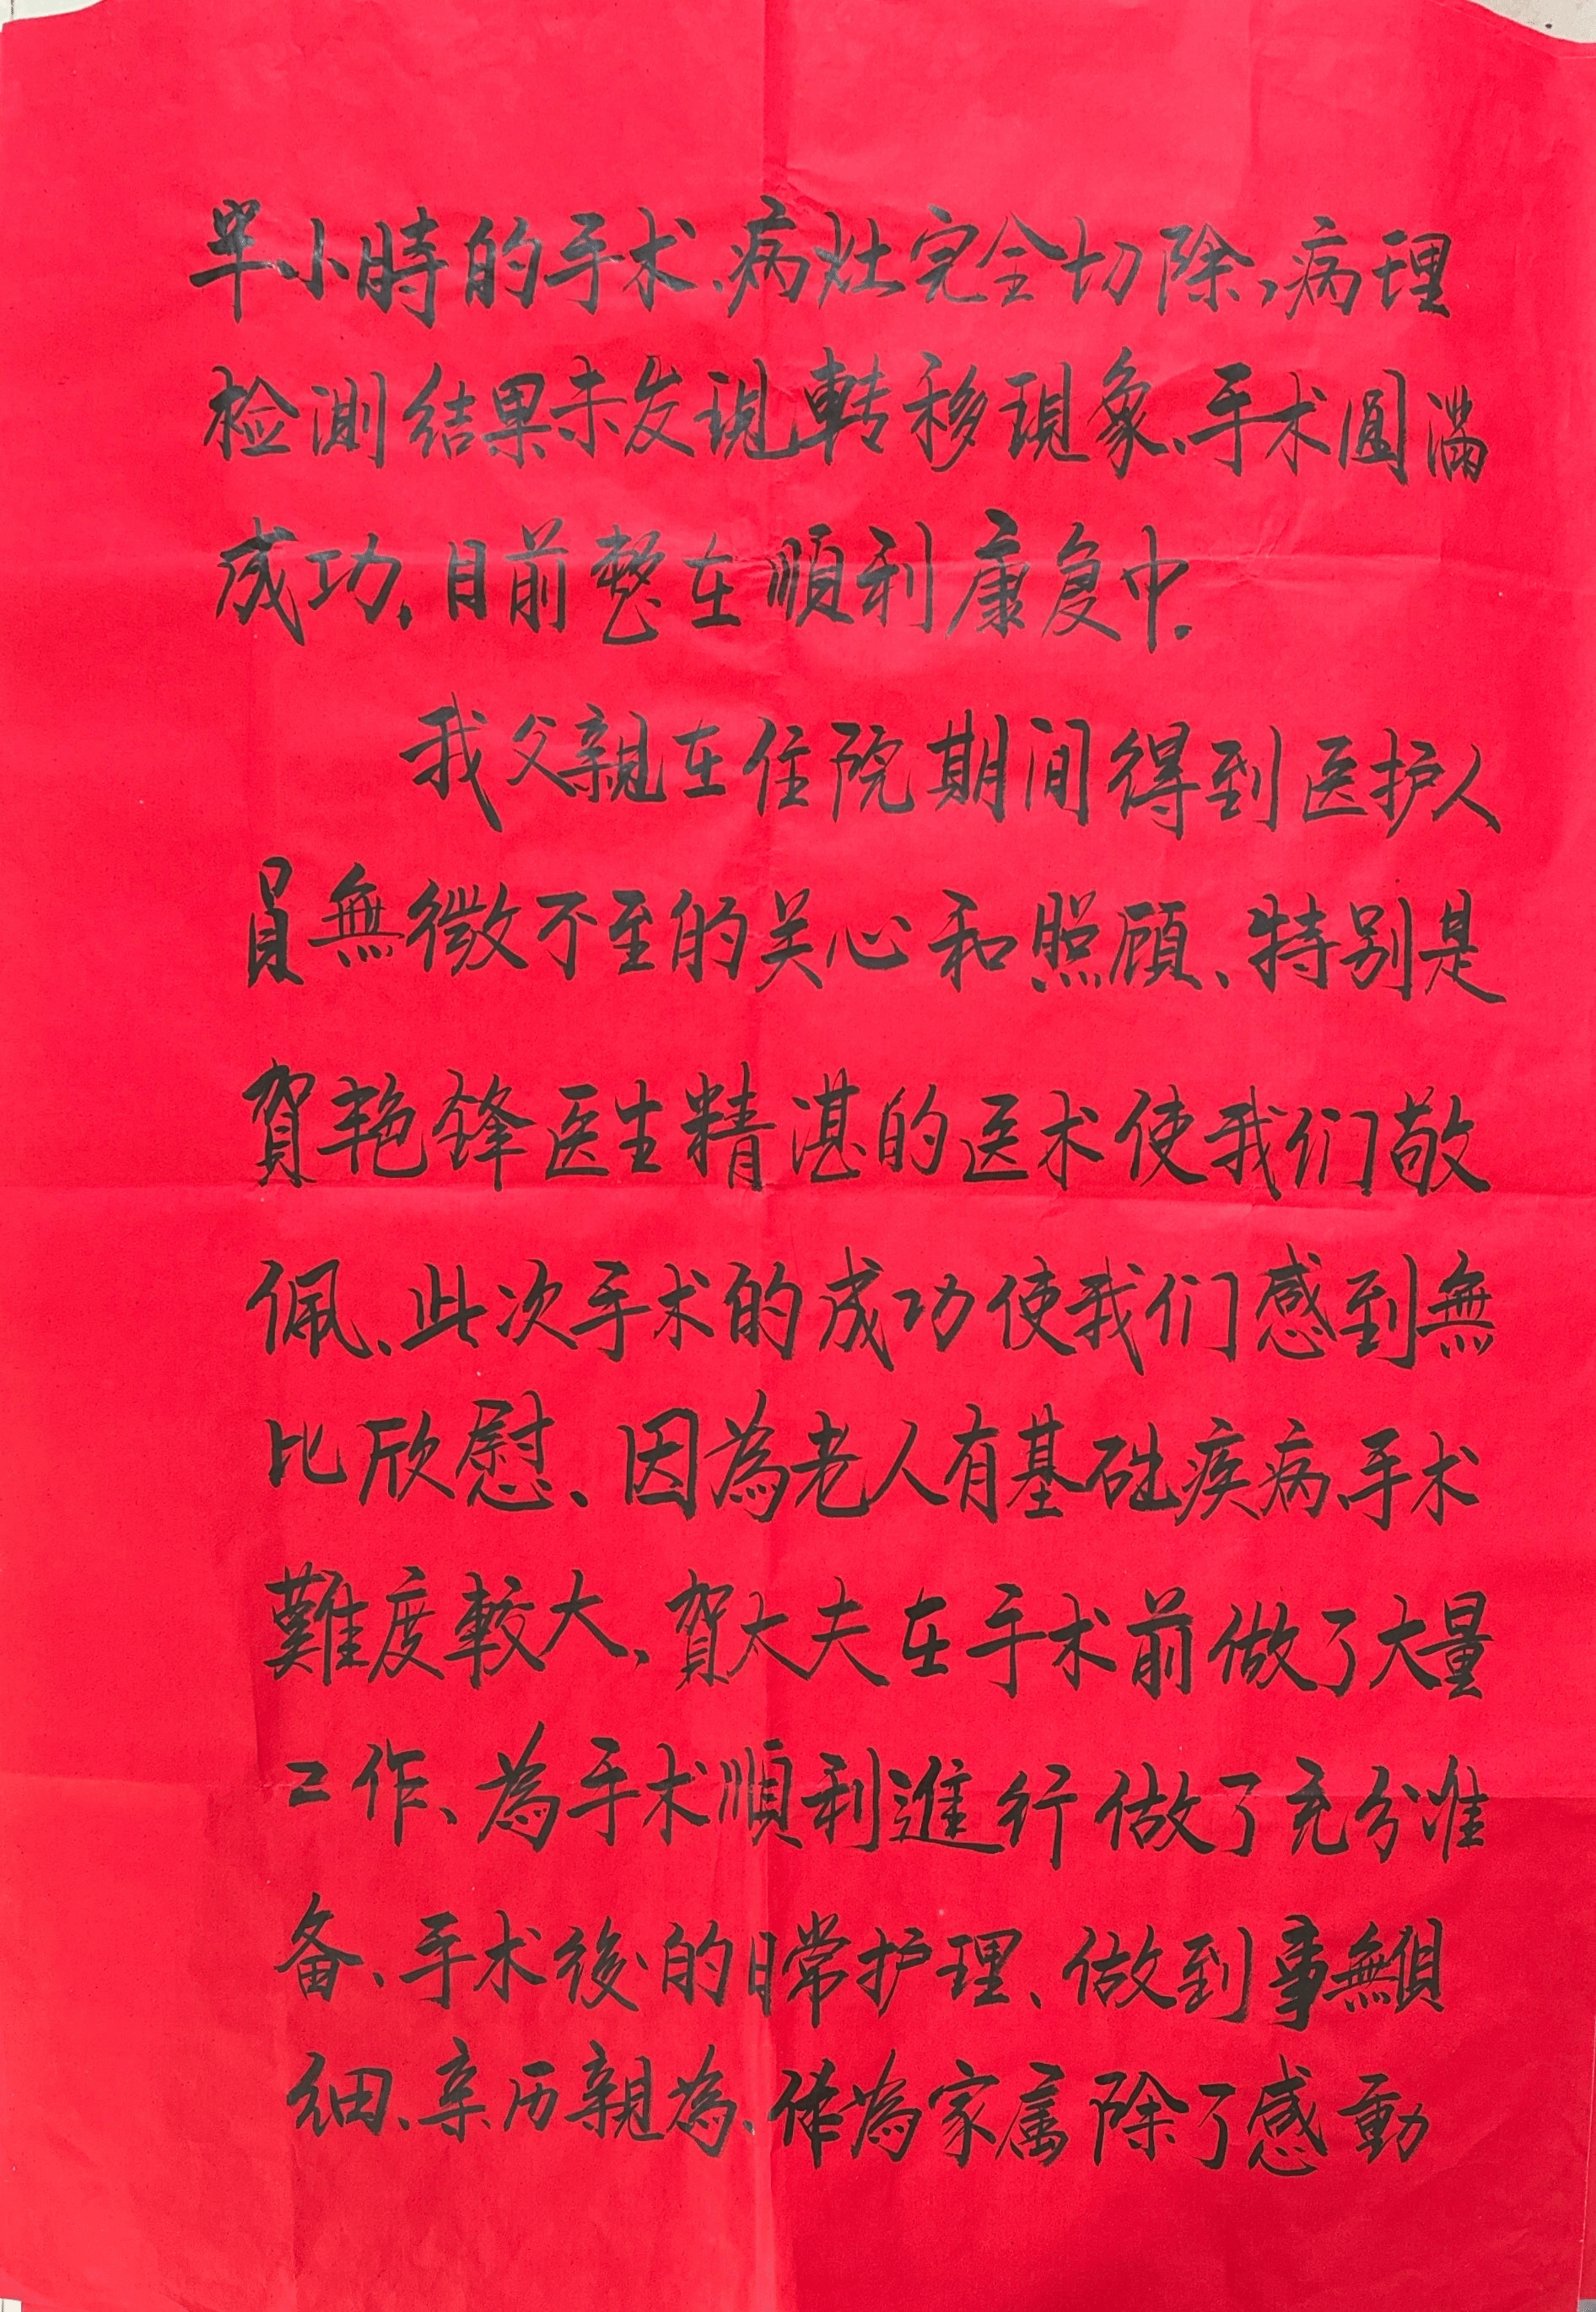 半小時的手术、病灶完全切除，病理
检测结果未发現轉移現象、手术圆滿
成功，目前整在順利康复中、
我父親在住院期间得到医护人
員無微不至的关心和照顧、特别是
賀艳锋医生精湛的医术使我们敬
佩、此次手术的成功使我们感到無
比欣慰、因為老人有基础疾病、手术
難度較大、賀大夫在手术前做了大量
工作、為手术順利進行做了充分准
备、手术後的日常护理、做到事無俱
细、亲历親為、作為家属除了感動